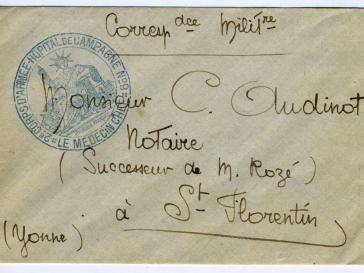 Corresp dce Militre
2e CORPS D'ARMÉE · HOPITAL DE CAMPAGNE N°8
LE MEDECIN CHEF
Monsieur C. Audinot
Notaire
(Successeur de M. Rozé)
à St Florentin
(Yonne)